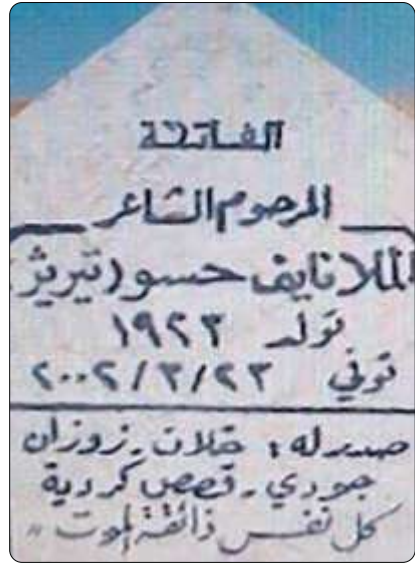 الفاتحة
المرحوم الشاعر
الملا نايف حسو (تيريژ)
تولد ١٩٢٣
توفي ٢٣/٣/٢٠٠٢
صدر له: خلات ـ زوزان
جودي ـ قصص كردية
كل نفس ذائقة الموت "